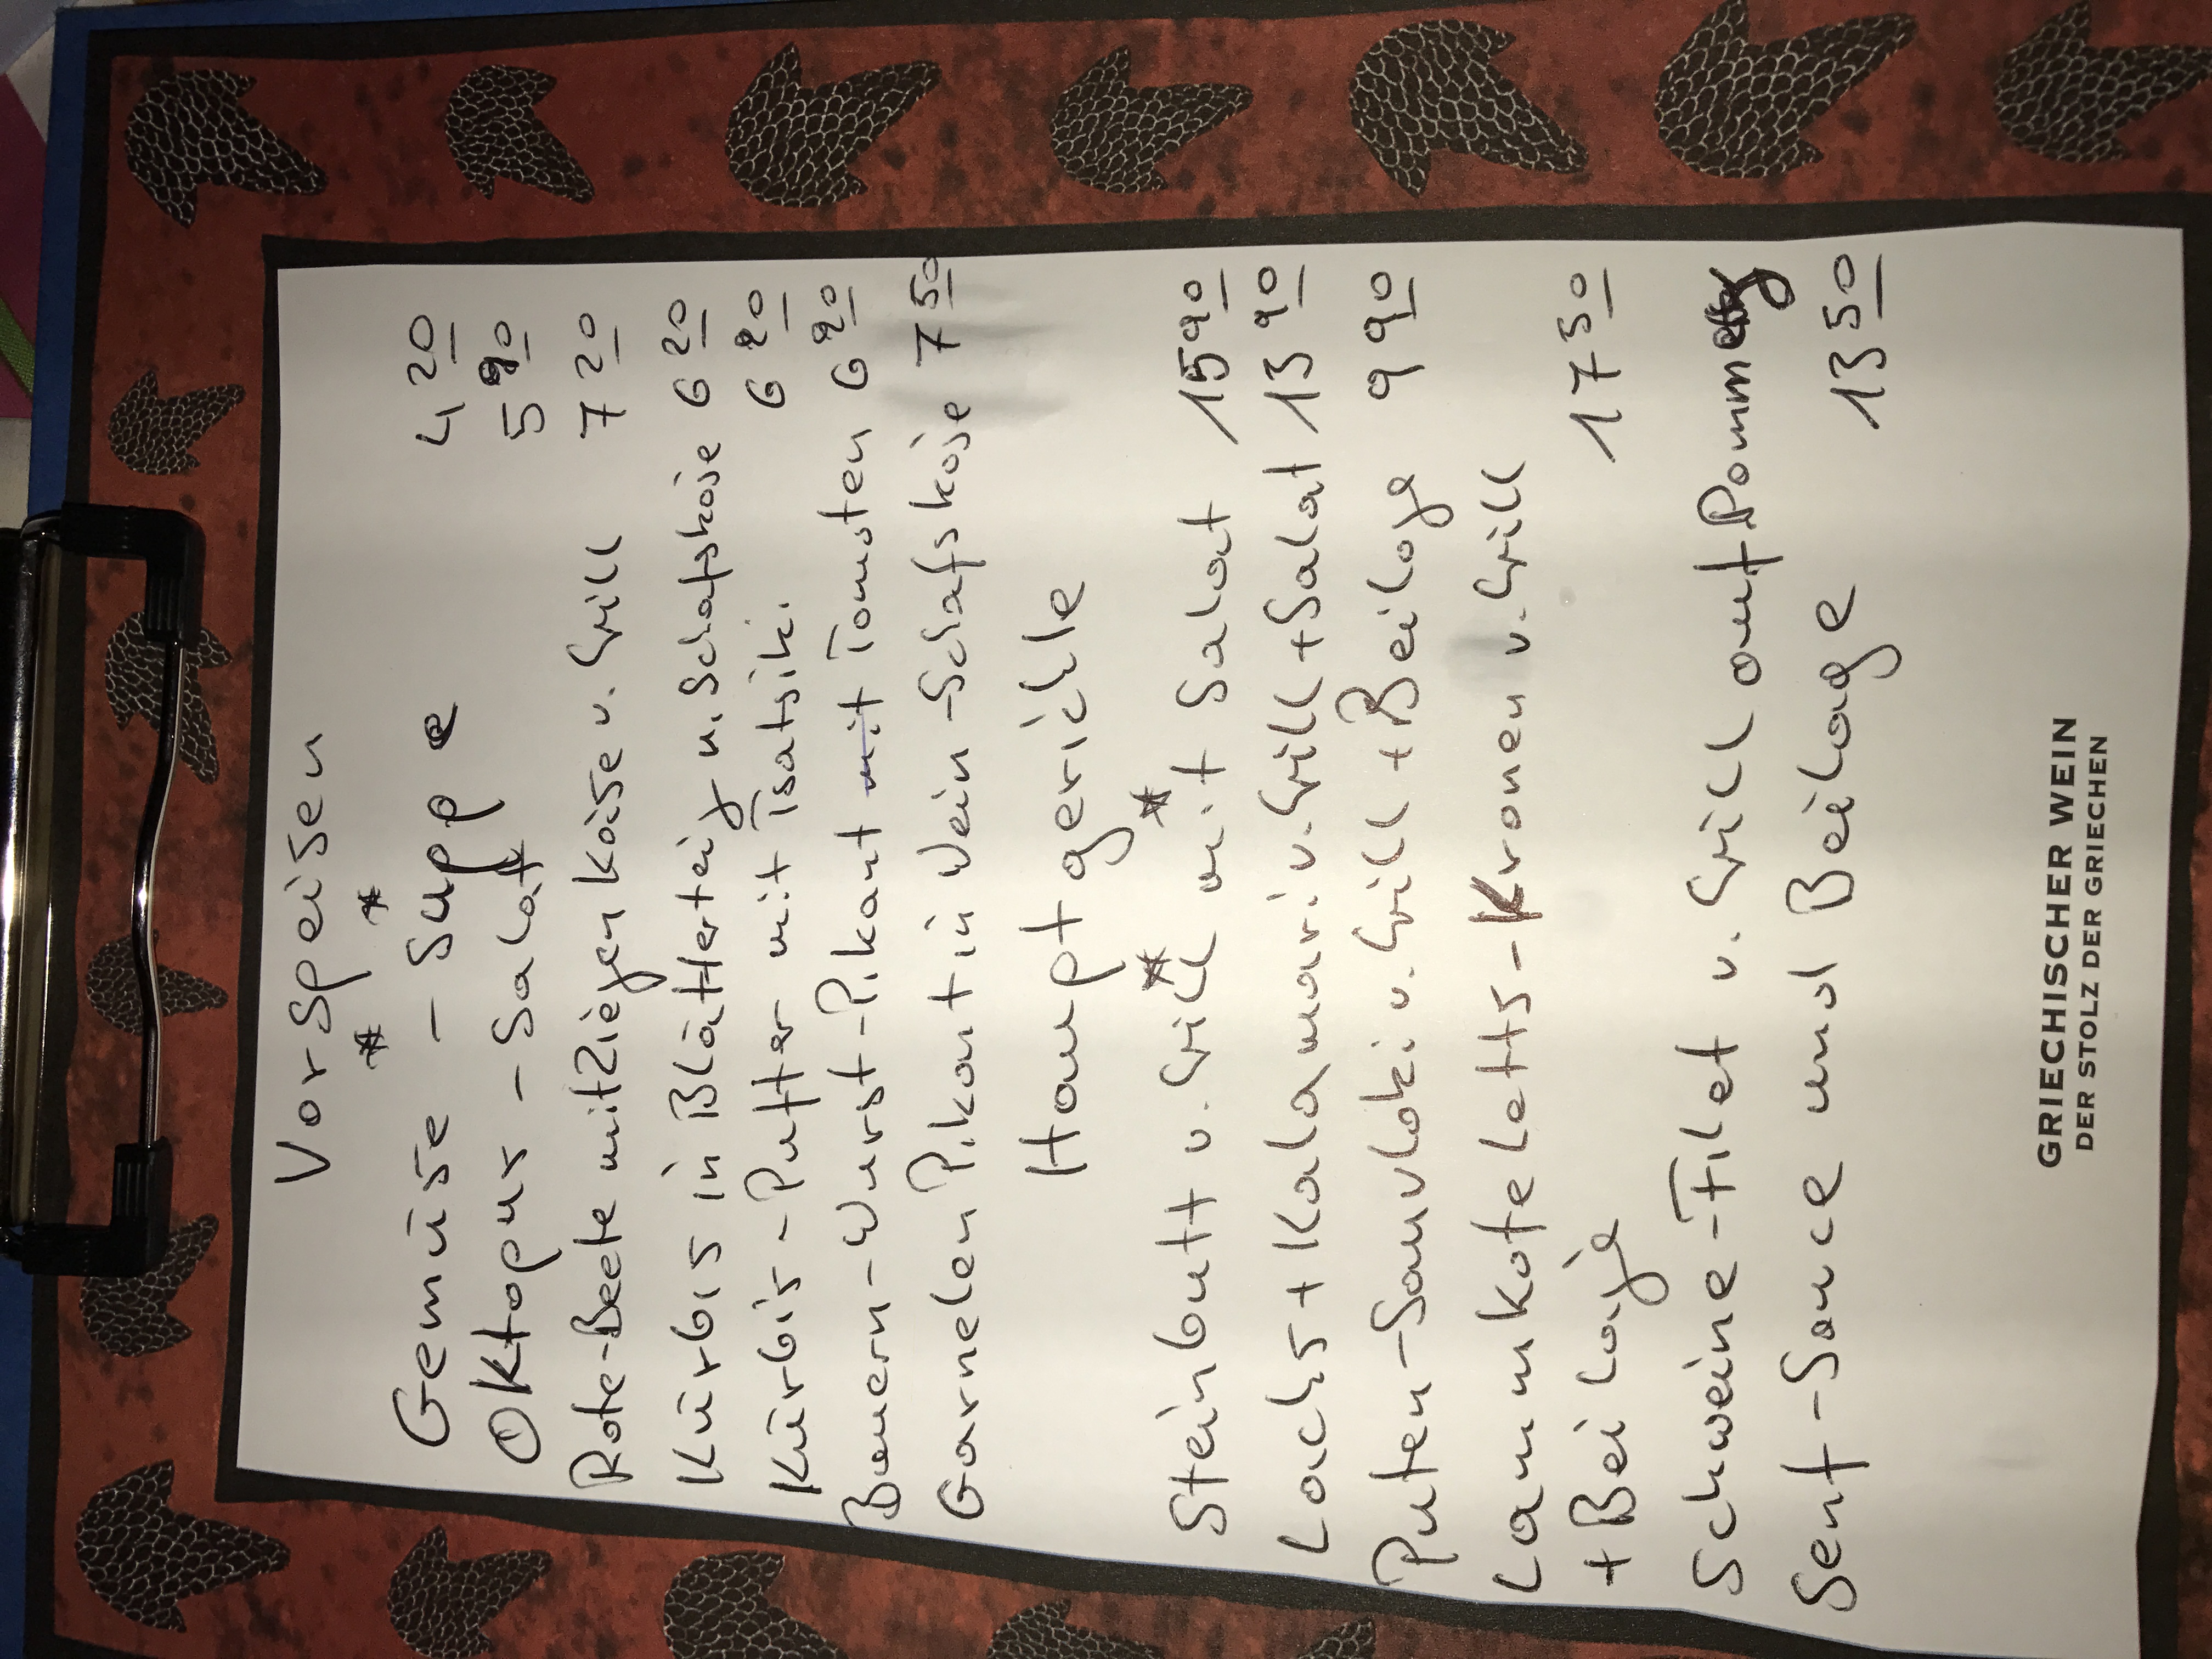 Vorspeisen
* *
Gemüse - Suppe 4 20
Oktopus - Salat 5 90
Rote-Beete mit Ziegen Käise v. Grill 7 20
Kürbis in Blätterteig u. Schafskäse 6 20
Kürbis - Puffer mit Tsatsiki 6 20
Bauern-Wurst-Pikant mit Tomaten 6 20
Garnelen Pikant in Wein-Schafskäse 7 50
Hauptgerichte
* *
Steinbutt v. Grill mit Salat 15 90
Lachs + Kalamari v. Grill + Salat 13 90
Puten-Sauvlaki v. Grill + Beilage 9 90
Lammkoteletts-Kronen v. Grill
+ Beilage 17 50
Schweine-Filet v. Grill auf
Senf-Sauce und Beilage 13 50
GRIECHISCHER WEIN
DER STOLZ DER GRIECHEN